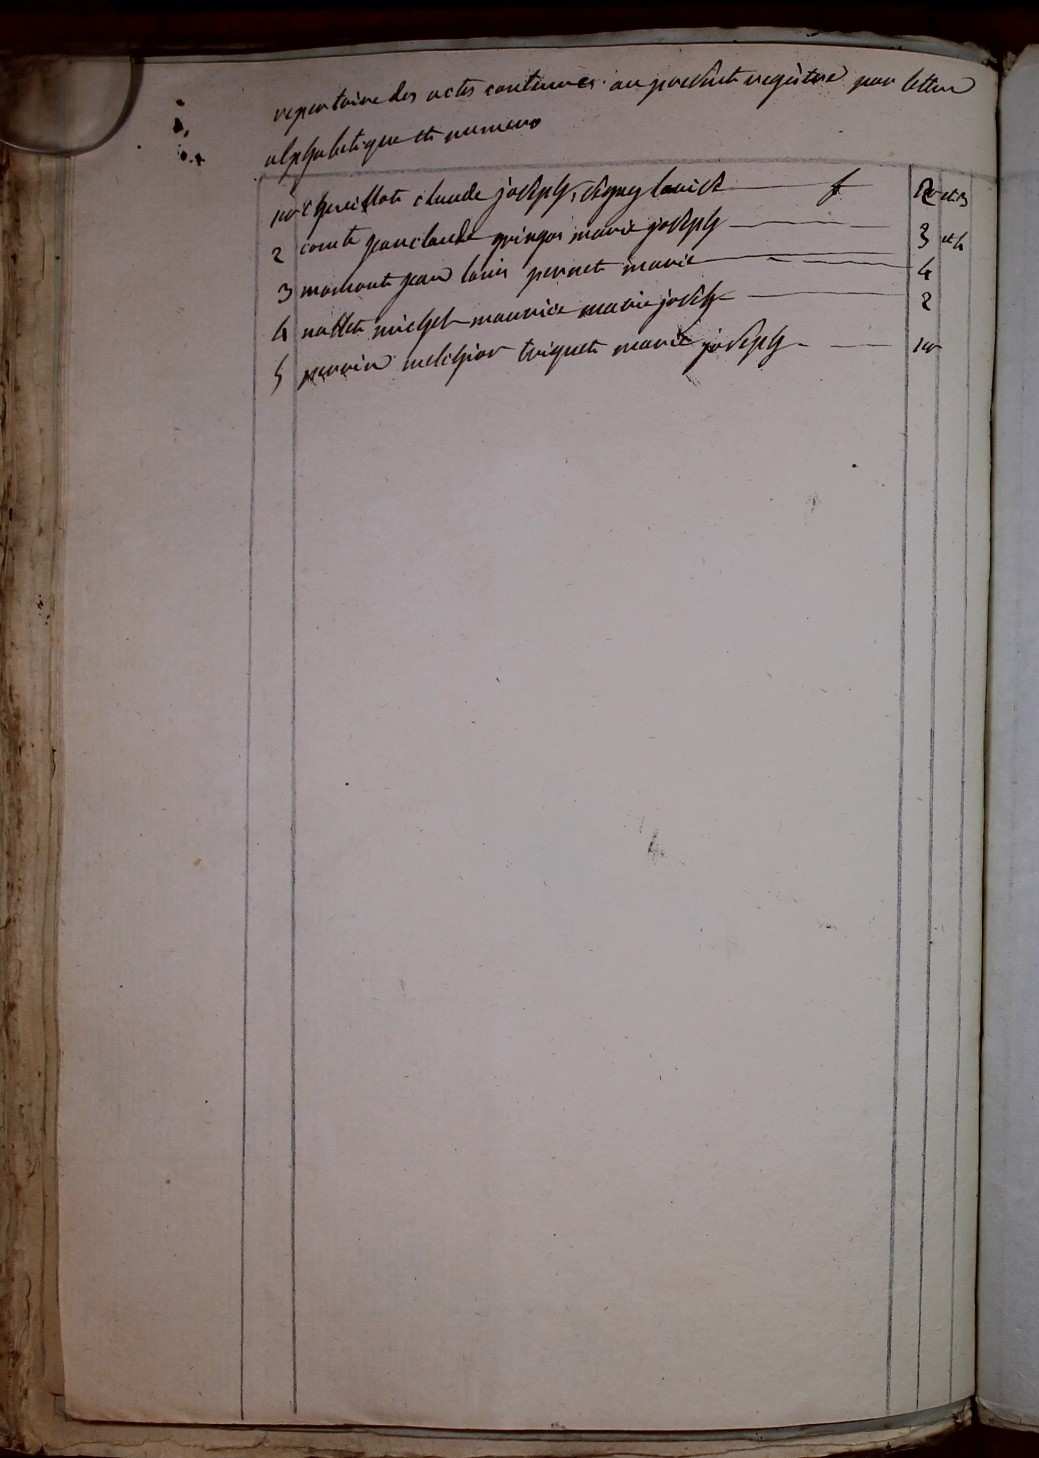 repertoire des actes contenues au present registre par lettre
alphabetique et numero
1er chevillote claude joseph, vigney louise f 2 et 3
2 comte jean claude gringos marie joseph 3 et 4
3 momont jean louis pernet marie 4
4 nottet michel maurice marie joseph 2
5 perrin melchior triquet marie joseph 1er